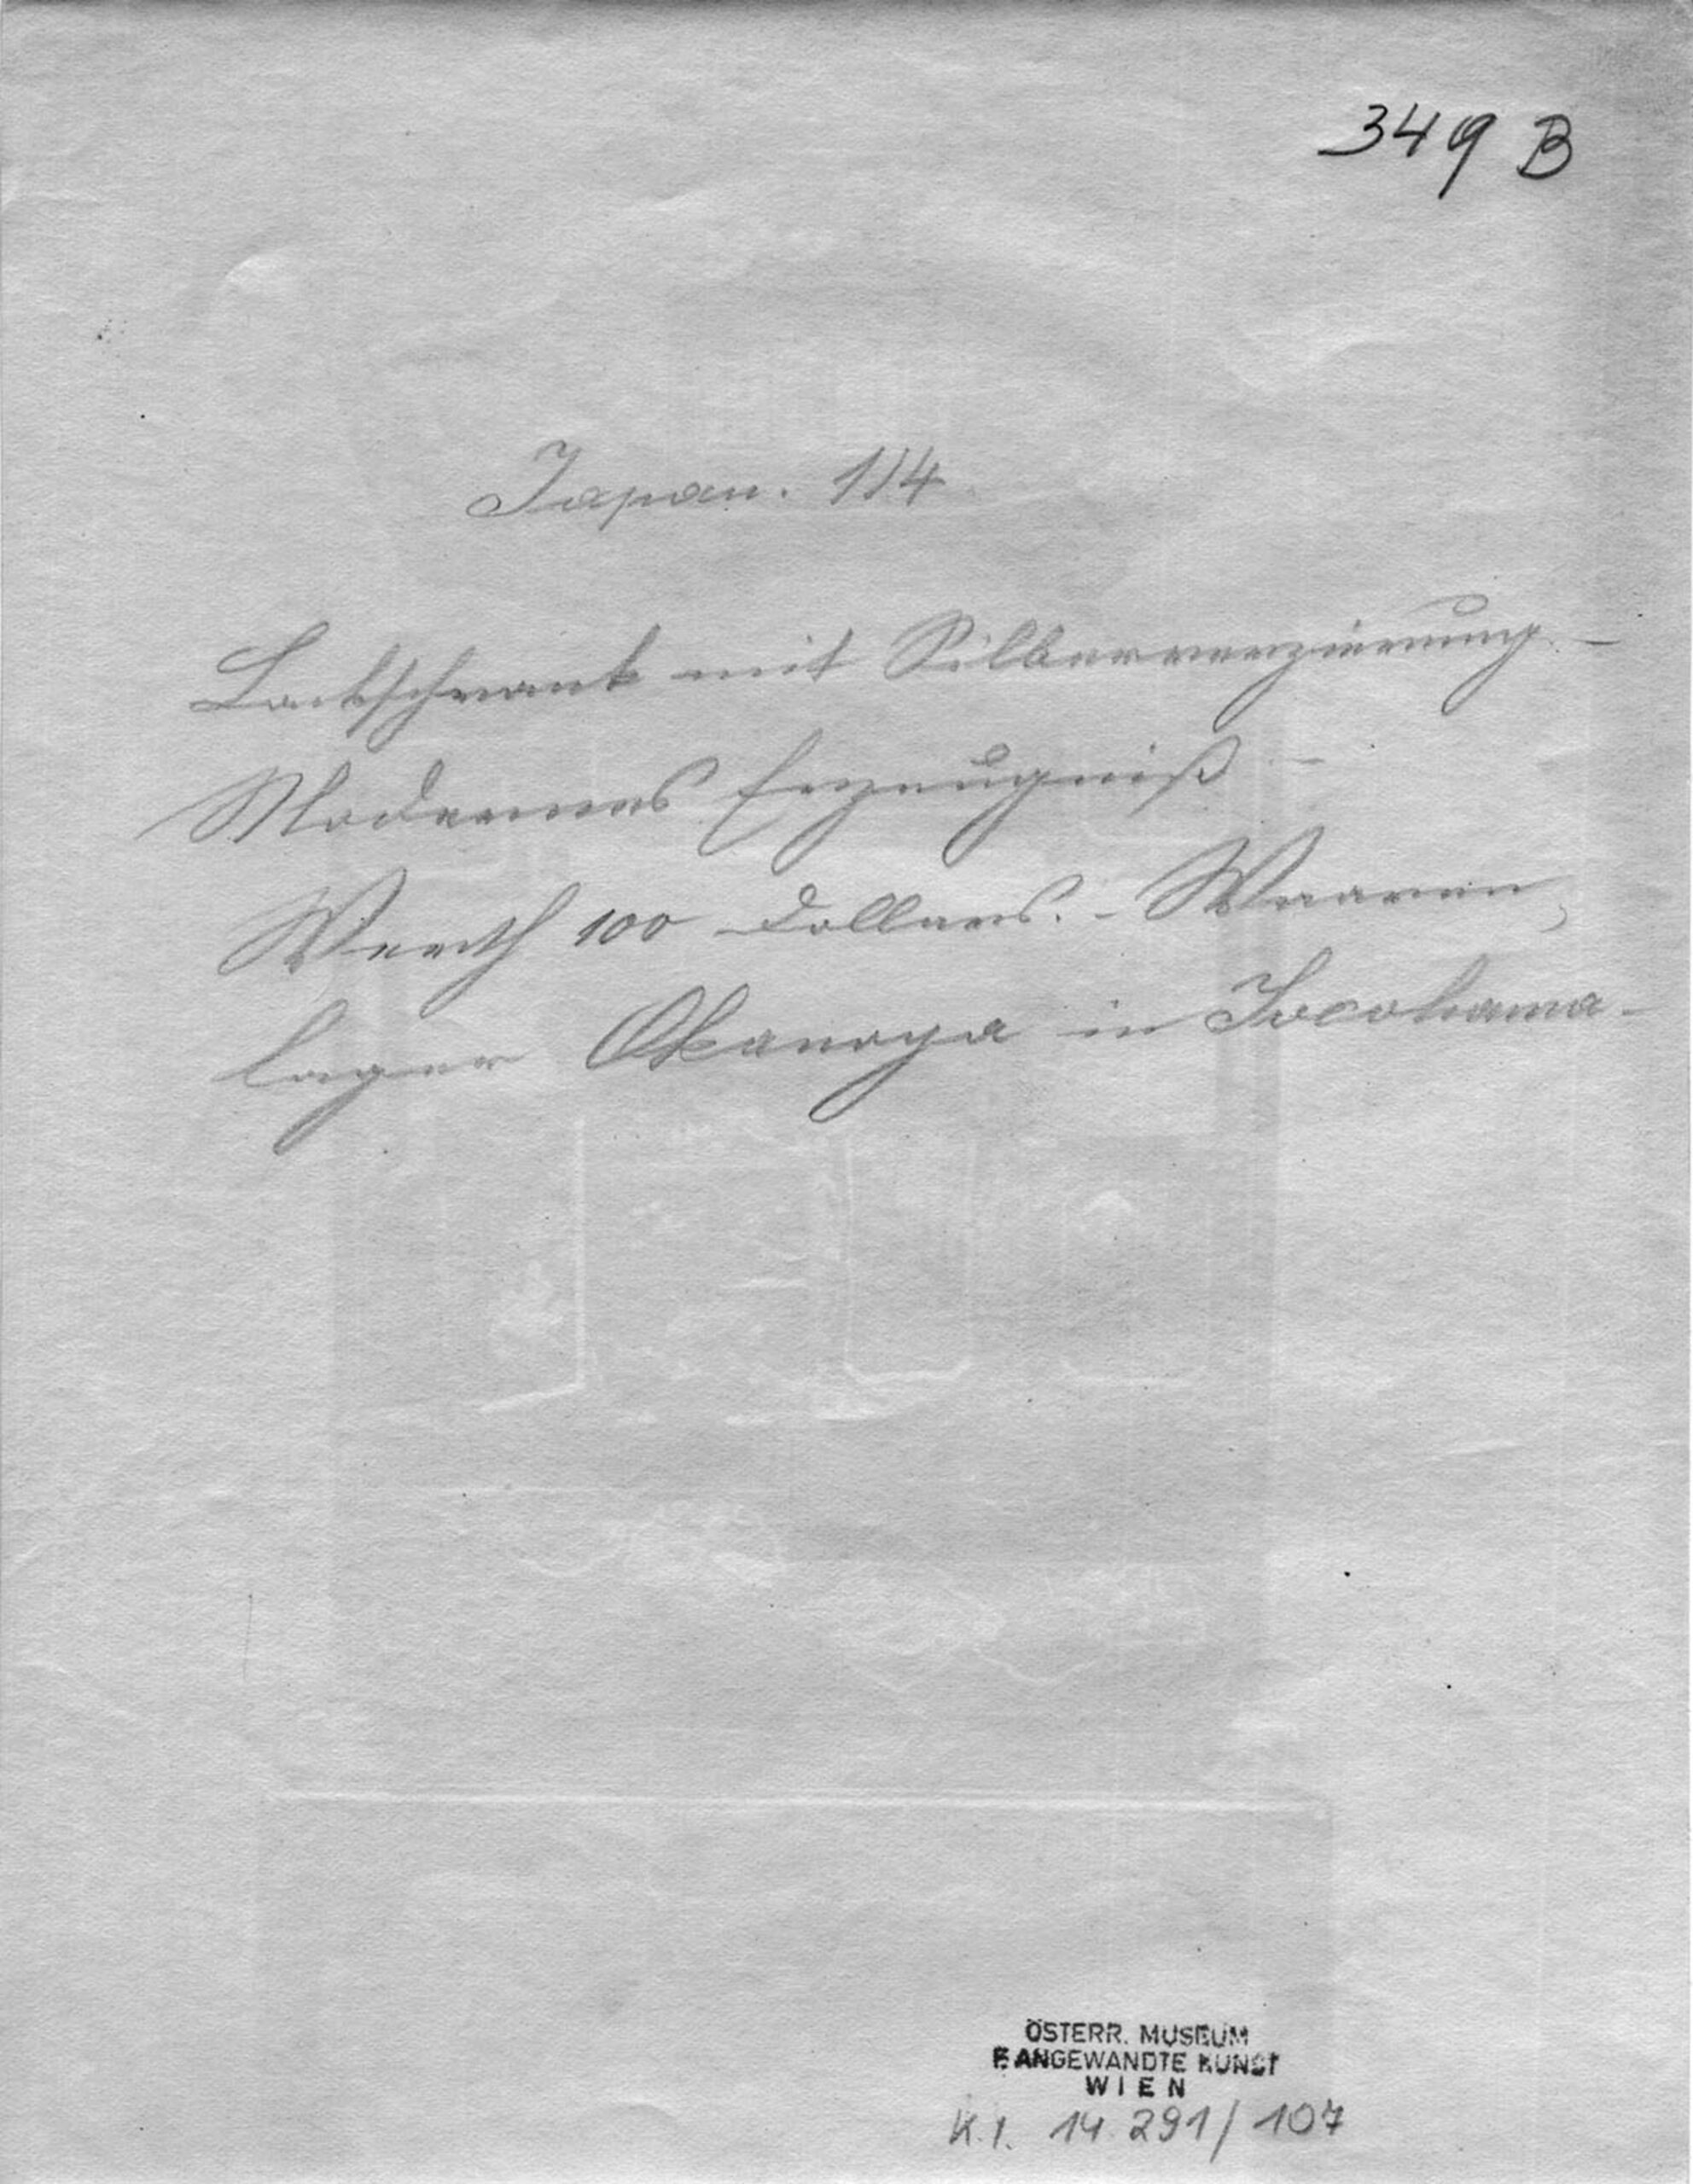 349 B
Japan. 114
Lackschrank mit Silberverzierung. –
Modernes Erzeugniß –
Werth 100 Dollars. – Waaren,
lager Okanoya in Jocohama –
ÖSTERR. MUSEUM
F. ANGEWANDTE KUNST
WIEN
K.I. 14.291/107